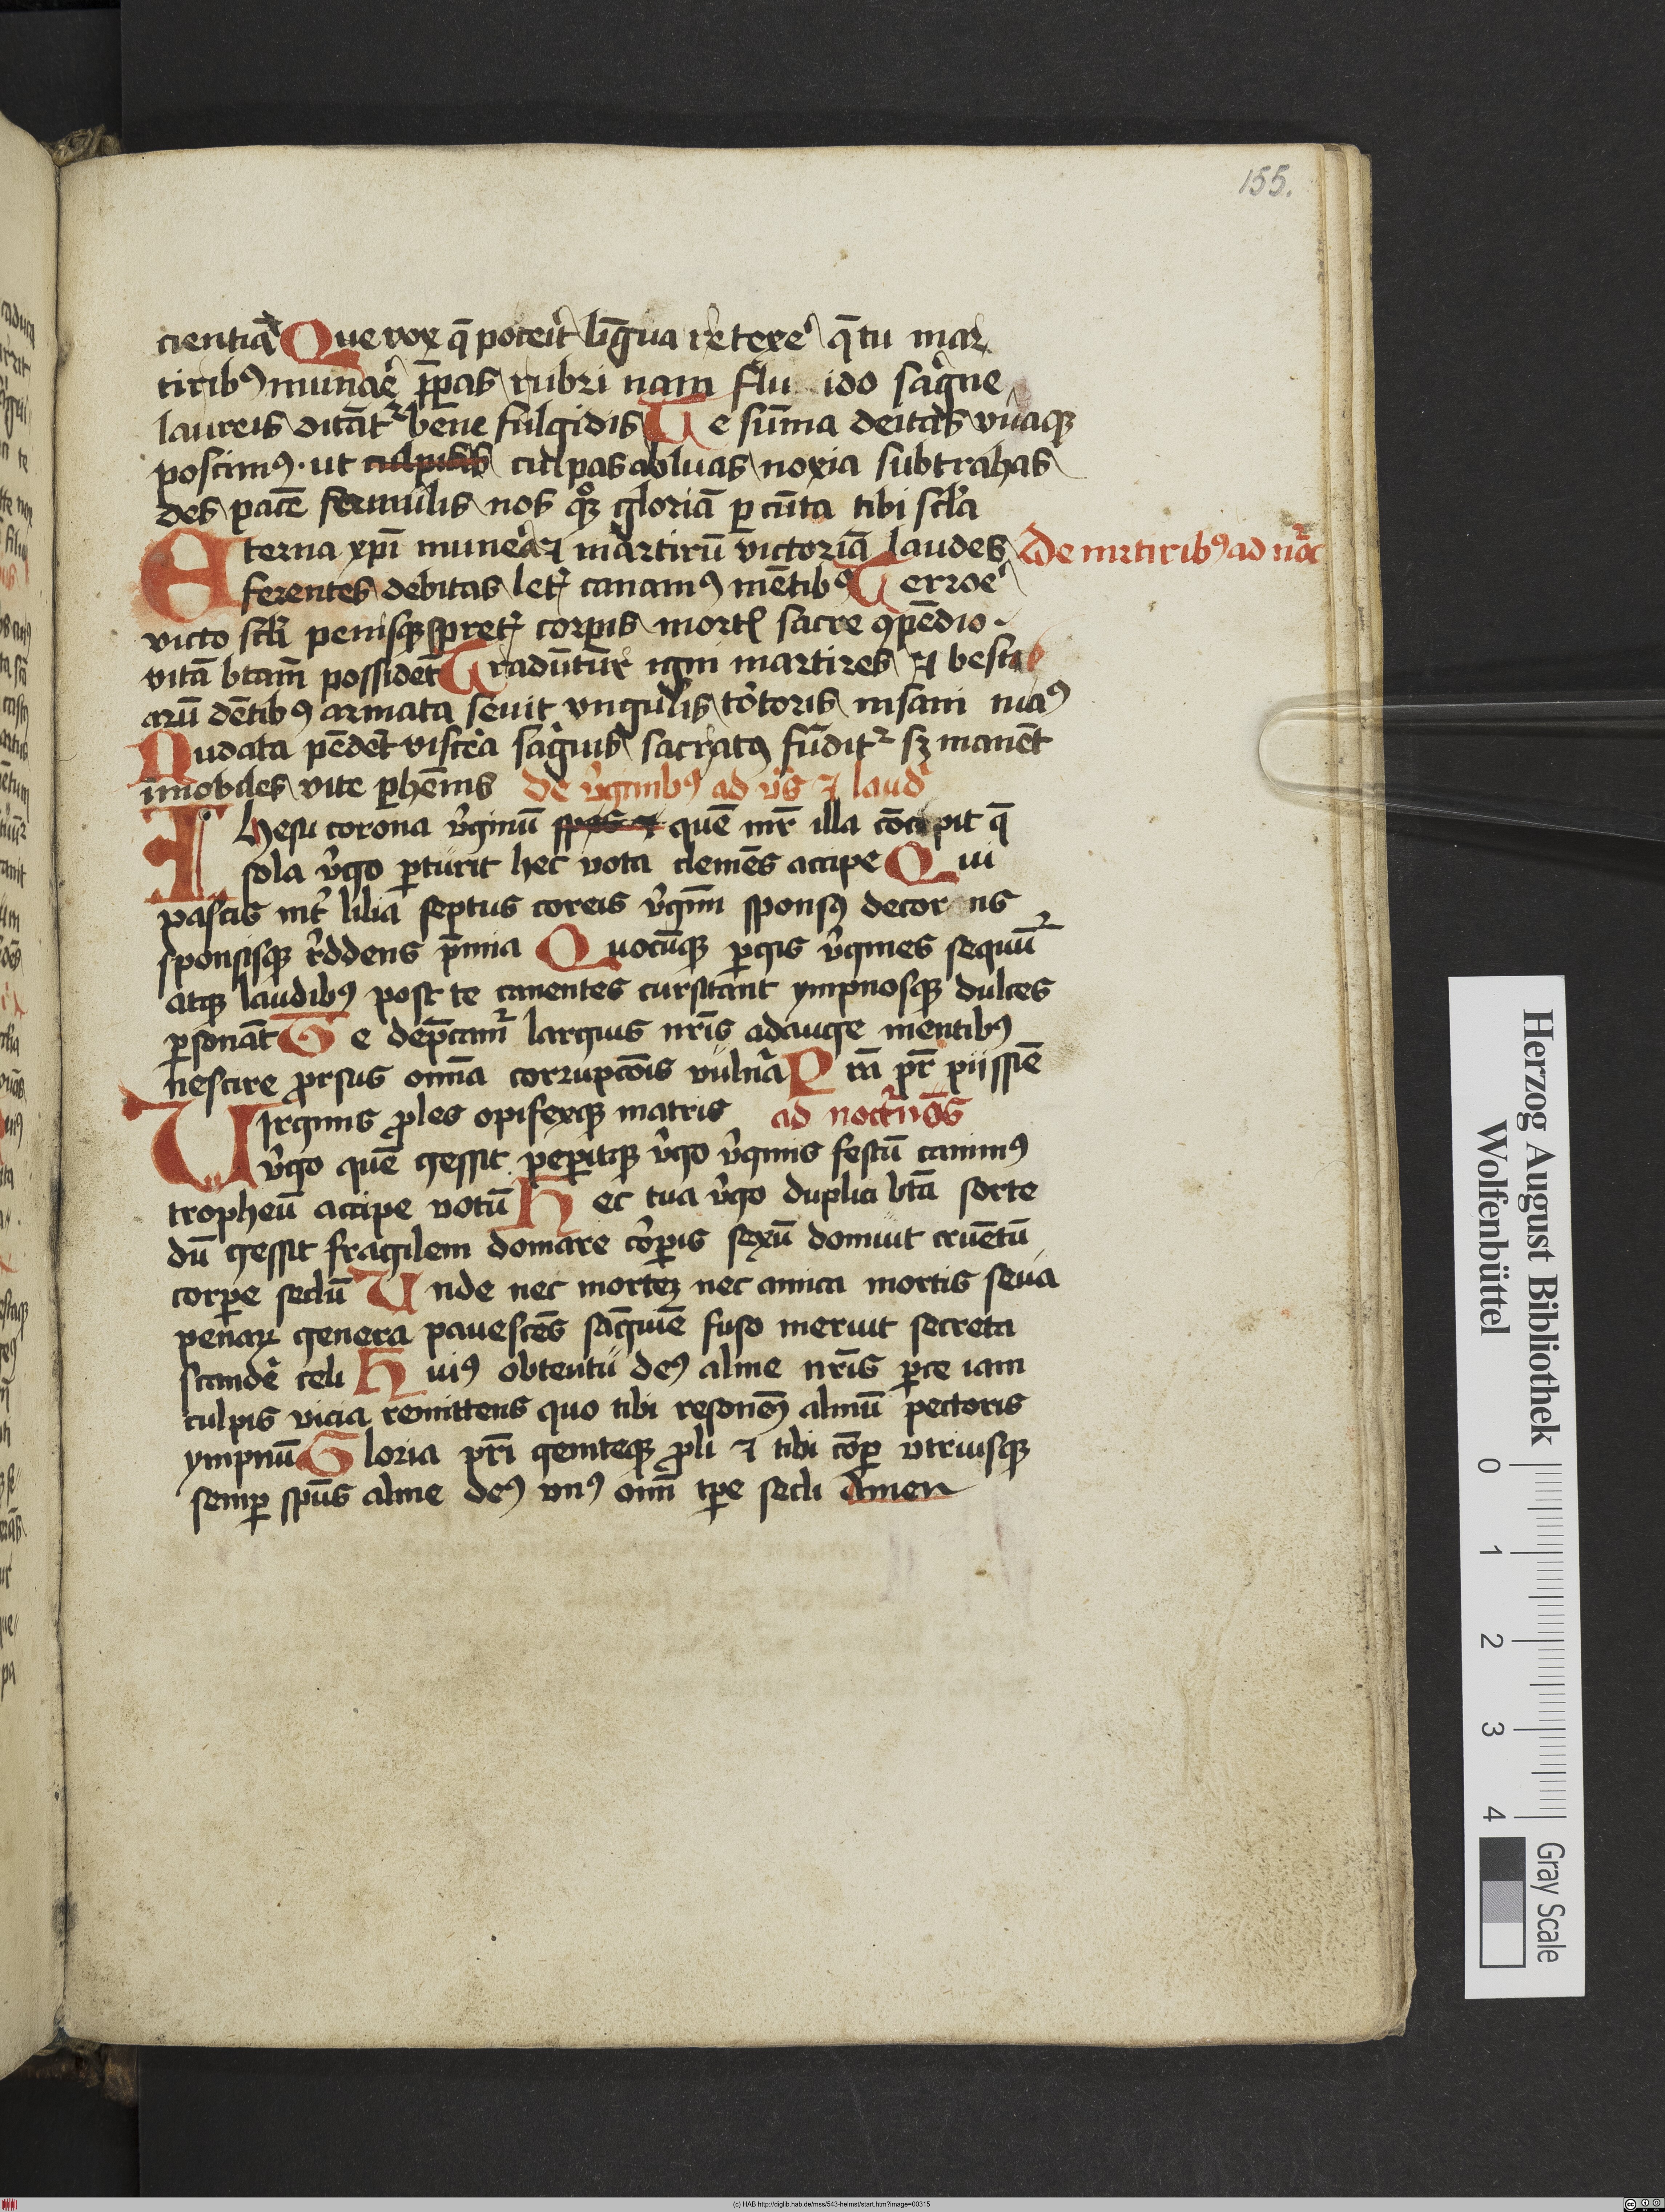 155.
cientiā Que vox q̄ poterit ligua retexe' q̄ tu mar
tiribꝰ munae' p̄pas rubri nam flu ido sag̃ne
laureis ditāt' bene fulgidis Te sūma deitas vnaqꝫ
poscimꝰ · ut culpas abluas noxia subtrahas
des pacē famulis nos qꝫ gloriā p cūta tibi scl̃a
Eterna xp̄i munera ⁊ martirū victoriā laudes De mrtiribꝰ ad noc
ferentes debitas let' canamꝰ mētibꝰ Terroe'
victo scl̃i penisqꝫ spret' corpis mortꝭ sacre ꝯpēdio ·
vitā btam possidēt Tradūtur igni martires ⁊ besti
arū dētibꝰ armata seuit vngulis tōtoris insani manꝰ
Nudata pēdet viscera saguis sacratꝰ fūdit' sꝫ manēt
imobiles vite phēnis De v̓ginibꝰ ad v̓s ⁊ laud'
Ihesu corona v̓ginū quē mr̄ illa cōcipit q̄
sola v̓go pturit hec vota clemēs accipe Qui
pascis int' lilia septus coreis v̓ginū sponsꝰ decor ns
sponsisqꝫ rddens p̄mia Quocūqꝫ pgis v̓gines sequūt'
atqꝫ laudibꝰ post te canentes cursitant ympnosqꝫ dulces
psonāt Te dep̄cam' largius nr̄is adauge mentibꝰ
nescire prsus omīa corrupcōis vulnā P rā pr̄ piissiē
Virginis ples opifexqꝫ matris ad noct'nōs
v̓go quē gessit pepitqꝫ v̓go v̓ginis festū canimꝰ
tropheū accipe votū Hec tua v̓go duplici btā sorte
dū gessit fragilem domare corpis sexū domuit cruētū
corpe seclū Vnde nec mortēꝫ nec amica mortis seua
penaꝝ genera pauescēs saguīe fuso meruit secreta
scande' celi Huiꝰ obtentu deꝰ alme nr̄is pce iam
culpis vicia remittens quo tibi resonēꝰ almū pectoris
ympnū Gloria pr̄i geniteqꝫ pli ⁊ tibi cōp vtriusqꝫ
semp sp̄us alme deꝰ vnꝰ omī tpe secli Amen
Herzog August Bibliothek
Wolfenbüttel
0 1 2 3 4
Gray Scale
(c) HAB http://diglib.hab.de/mss/543-helmst/start.htm?image=00315